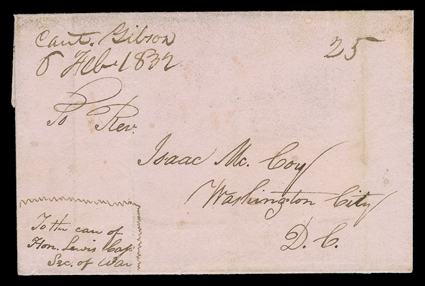 Cant. Gibson
8 Feb. 1832
25
To Rev.
Isaac Mc. Coy
Washington City
D. C.
To the care of
Hon. Lewis Cass
Sec. of War